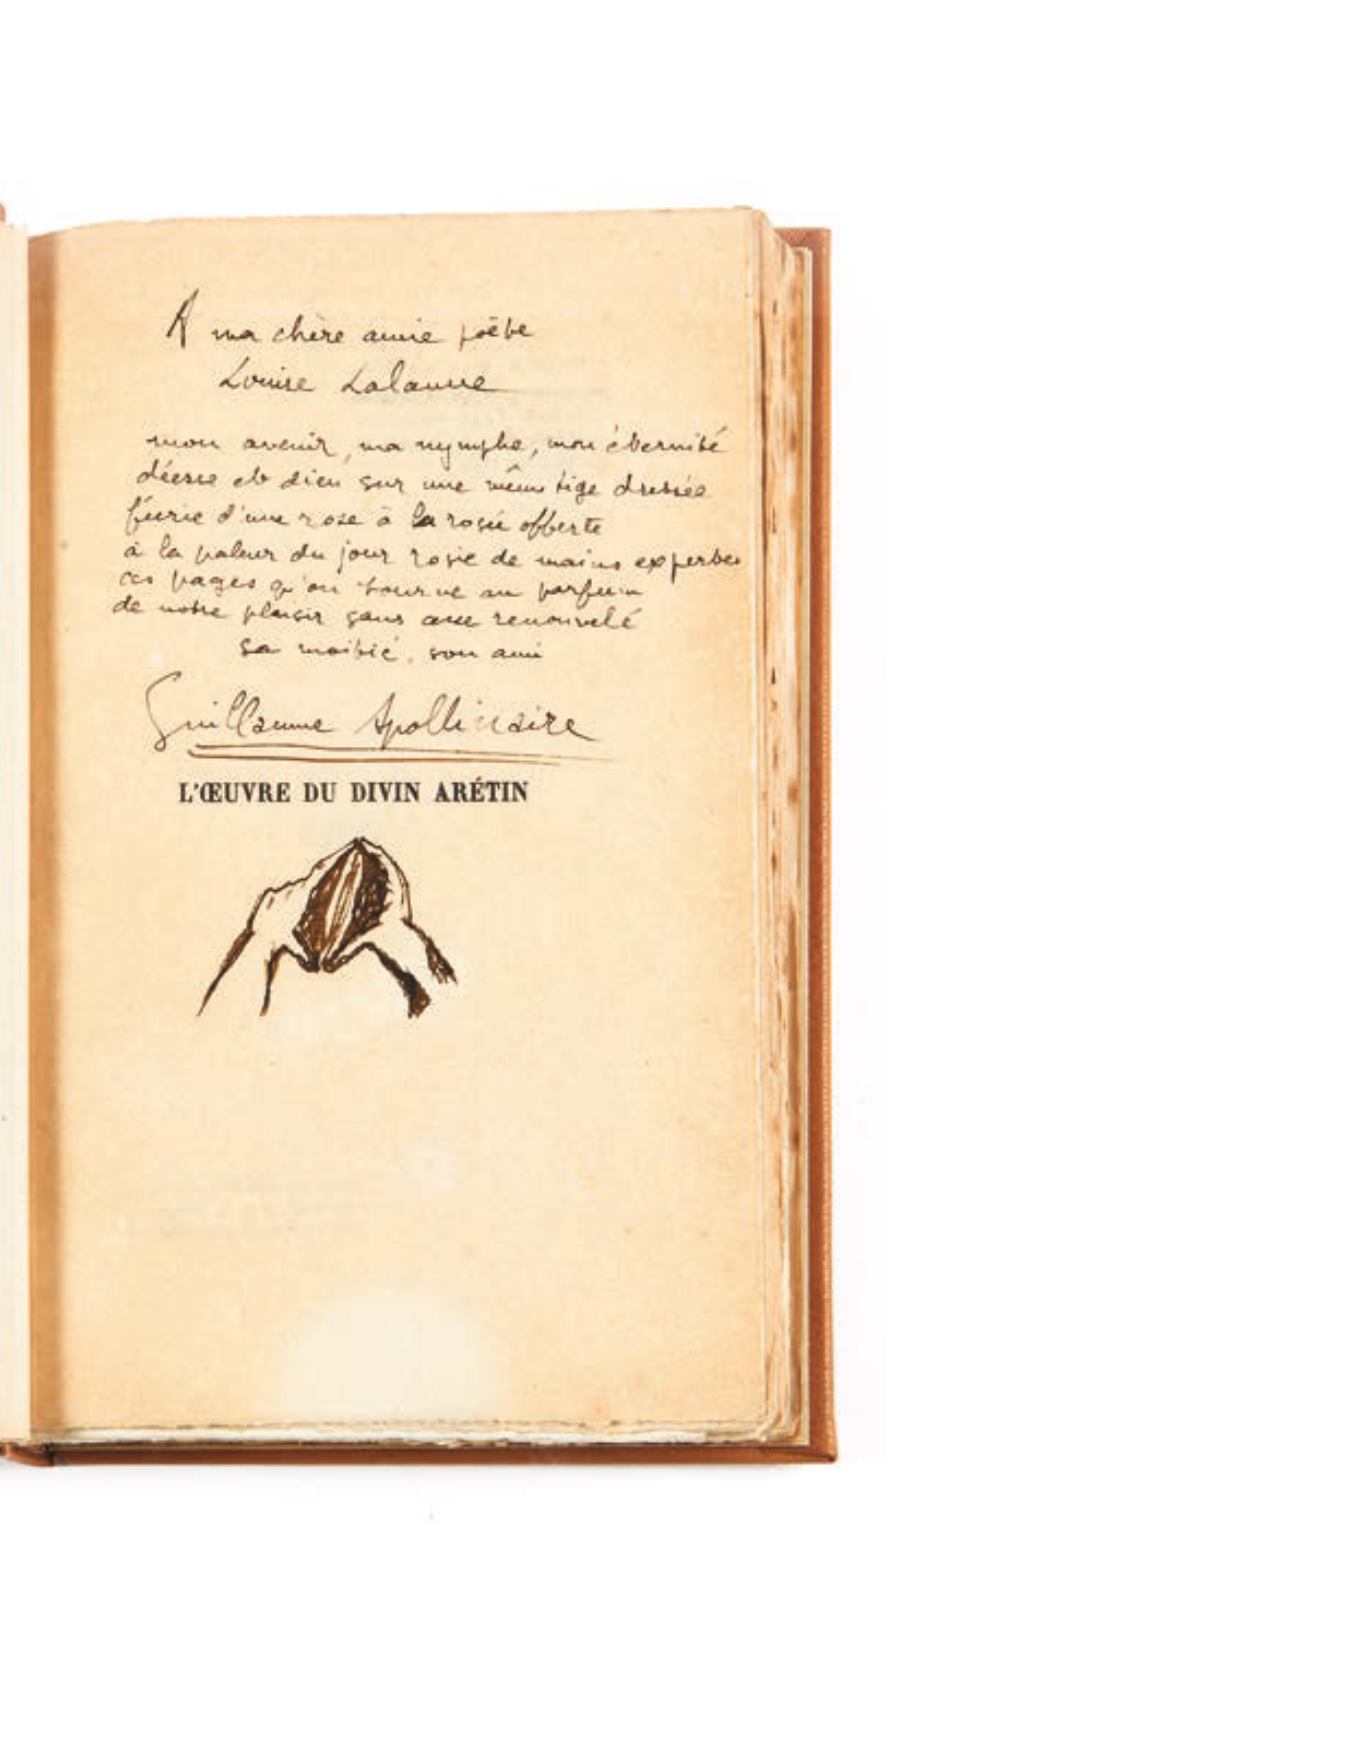 A ma chère amie poète
Louise Lalanne
mon avenir, ma nymphe, mon éternité
déesse et dieu sur une même tige dressée
féerie d'une rose à la rosée offerte
à la paleur du jour rosie de mains expertes
ces pages qu'on tourne au parfum
de notre plaisir sans cesse renouvelé
sa moitié, son ami
Guillaume Apollinaire
L'ŒUVRE DU DIVIN ARÉTIN